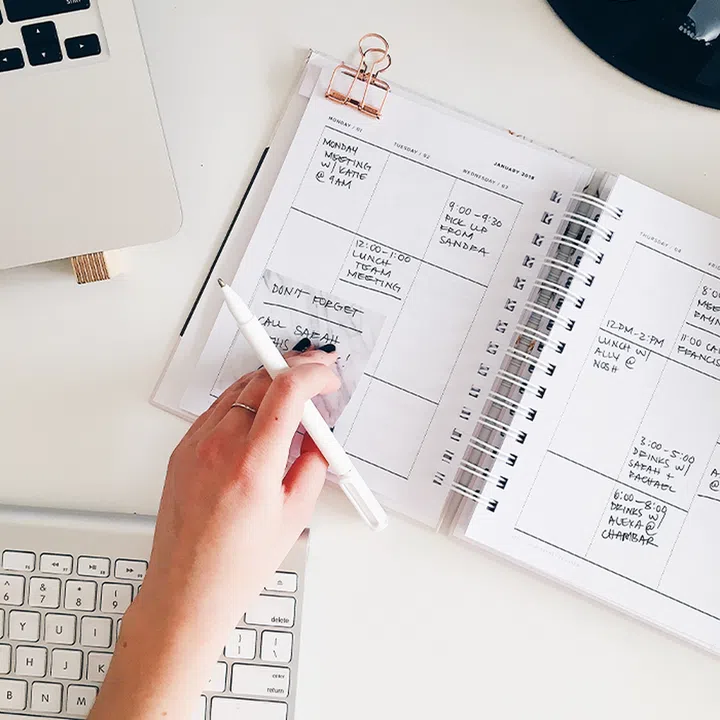 MONDAY / 01
MONDAY
MEETING
W/ KATIE
@ 9AM
TUESDAY / 02
12:00-1:00
LUNCH
TEAM
MEETING
JANUARY 2018
WEDNESDAY / 03
9:00-9:30
PICK UP
FROM
SANDRA
DON'T FORGET
CALL SARAH
THURSDAY / 04
12PM-2PM
LUNCH W/
ALLY @
NOSH
3:00-5:00
DRINKS W/
SARAH +
RACHAEL
6:00-8:00
DRINKS W/
ALEXA @
CHAMBAR
11:00
^
6
&
7
*
8
(
9
Y
U
I
H
J
K
B
N
M
delete
enter
return